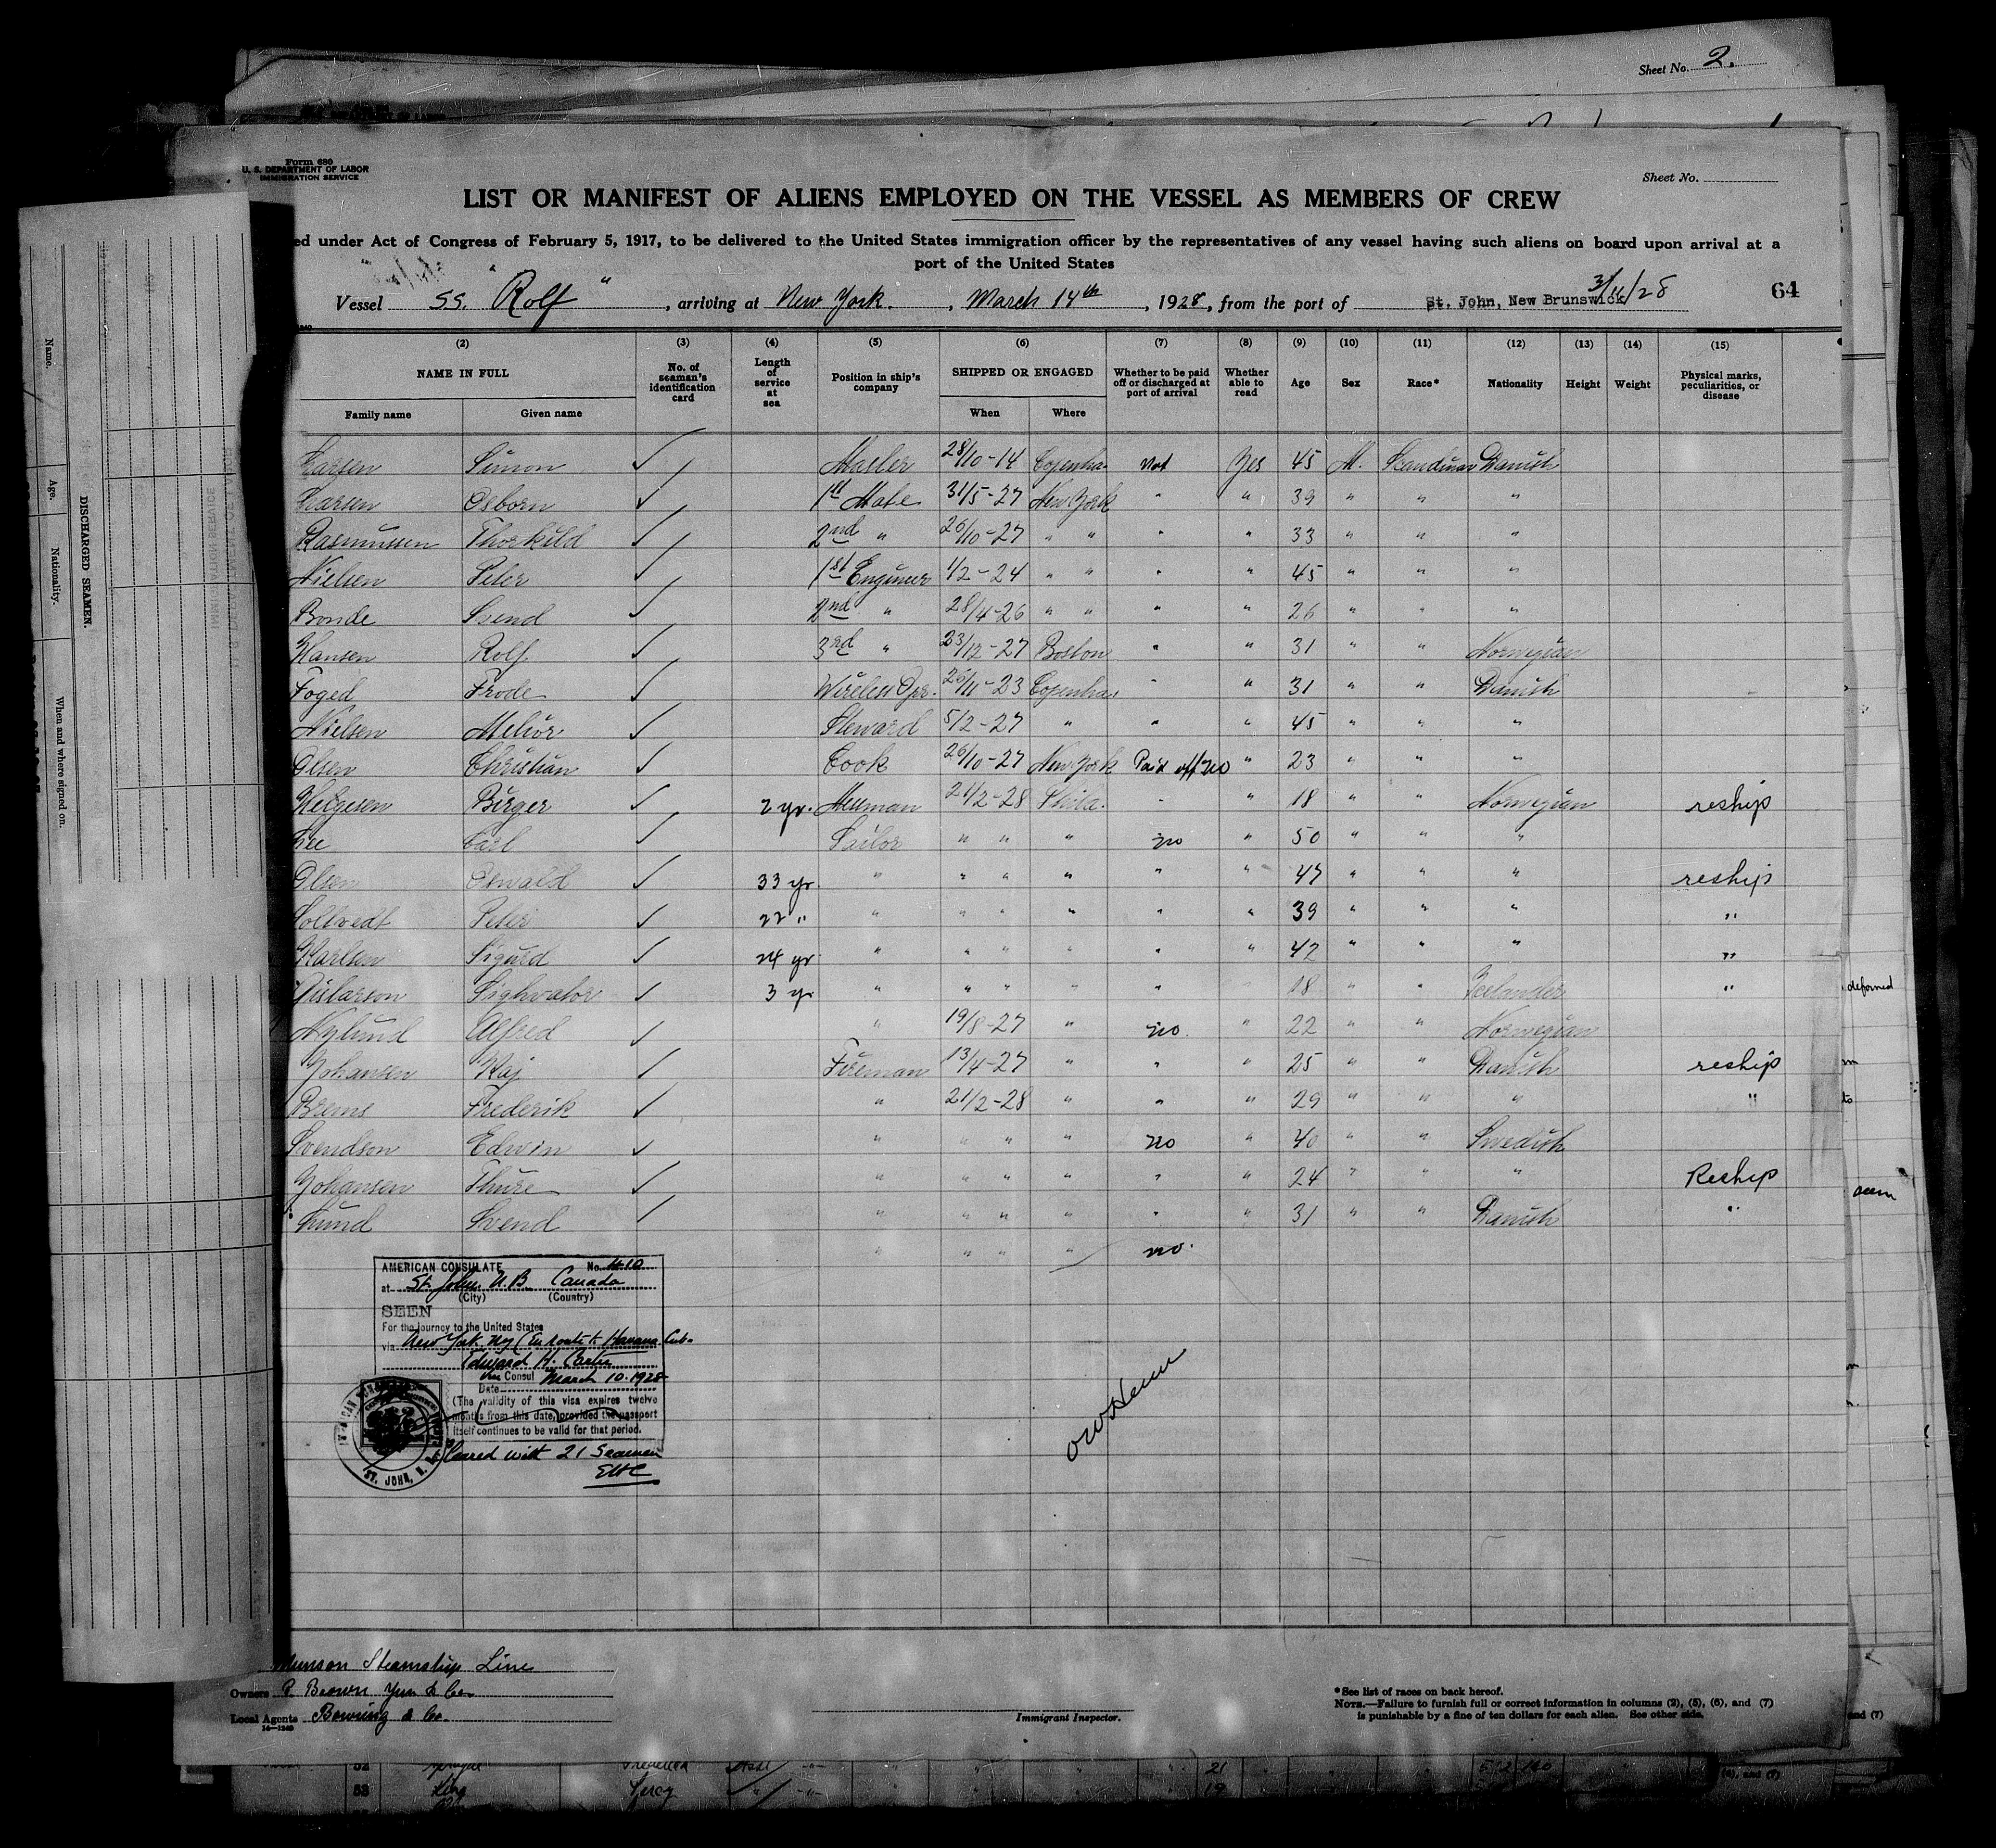 Sheet No. 2.
Form 680
U. S. DEPARTMENT OF LABOR
IMMIGRATION SERVICE
Sheet No.
LIST OR MANIFEST OF ALIENS EMPLOYED ON THE VESSEL AS MEMBERS OF CREW
ed under Act of Congress of February 5, 1917, to be delivered to the United States immigration officer by the representatives of any vessel having such aliens on board upon arrival at a
port of the United States
Vessel SS. "Rolf", arriving at New York, March 14th, 1928, from the port of St. John, New Brunswick 64
(2) (3) (4) (5) (6) (7) (8) (9) (10) (11) (12) (13) (14) (15)
NAME IN FULL No. of seaman's identification card Length of service at sea Position in ship's company SHIPPED OR ENGAGED Whether to be paid off or discharged at port of arrival Whether able to read Age Sex Race* Nationality Height Weight Physical marks, peculiarities, or disease
Family name Given name When Where
Larsen Simon ✓ Master 28/10-14 Copenha. Not Yes 45 M. Scandinav Danish
Larsen Osborn ✓ 1st Mate 31/5-27 New York " " 39 " " "
Rasmussen Thorkild ✓ 2nd " 26/10-27 " " " " 33 " " "
Nielsen Peter ✓ 1st Engineer 1/2-24 " " " " 45 " " "
Bonde Svend ✓ 2nd " 28/4-26 " " " " 26 " " "
Hansen Rolf ✓ 3rd " 23/12-27 Boston " " 31 " " Norwegian
Foged Frode ✓ Wireless Opr. 26/11-23 Copenha. " " 31 " " Danish
Nielsen Melior ✓ Steward 5/2-27 " " " 45 " " "
Olsen Christian ✓ Cook 26/10-27 New York Paid off no " 23 " " "
Helgesen Birger ✓ 2 yr. Messman 21/2-28 Phila. " " 18 " " Norwegian reship
Lee Carl ✓ Sailor " " " no " 50 " " "
Olsen Oswald ✓ 33 yr. " " " " " " 47 " " " reship
Soltvedt Peter ✓ 22 " " " " " " " 39 " " " "
Karlsen Sigurd ✓ 24 yr " " " " " " 42 " " " "
Gislarson Sighvator ✓ 3 yr " " " " " " 18 " " Icelander "
Nylund Alfred ✓ " 19/8-27 " no. " 22 " " Norwegian
Johansen Kaj ✓ Fireman 13/4-27 " " " 25 " " Danish reship
Brems Frederik ✓ " 21/2-28 " " " 29 " " " "
Svendson Edwin ✓ " " " " no " 40 " " Swedish
Johansen Thure ✓ " " " " " " 24 " " " Reship
Lund Svend ✓ " " " " " " 31 " " Danish "
" " " " no.
AMERICAN CONSULATE No. 410
at St. John, N.B. Canada
(City) (Country)
SEEN
For the journey to the United States
via New York, NY (En route to Havana Cuba
Edward H. Carter
Vice Consul
Date March 10. 1928
(The validity of this visa expires twelve
months from this date, provided the passport
itself continues to be valid for that period.
Cleared with 21 Seamen
EHC
ST. JOHN, N. B.
Munson Steamship Line
Owners
Local Agents Bowring & Co.
14-1240
Immigrant Inspector.
*See list of races on back hereof.
NOTE.—Failure to furnish full or correct information in columns (2), (5), (6), and (7)
is punishable by a fine of ten dollars for each alien. See other side.
Name.
Age.
Nationality.
When and where signed on.
DISCHARGED SEAMEN.
IMMIGRATION SERVICE
deformed
and (7)
53 King Percy 19